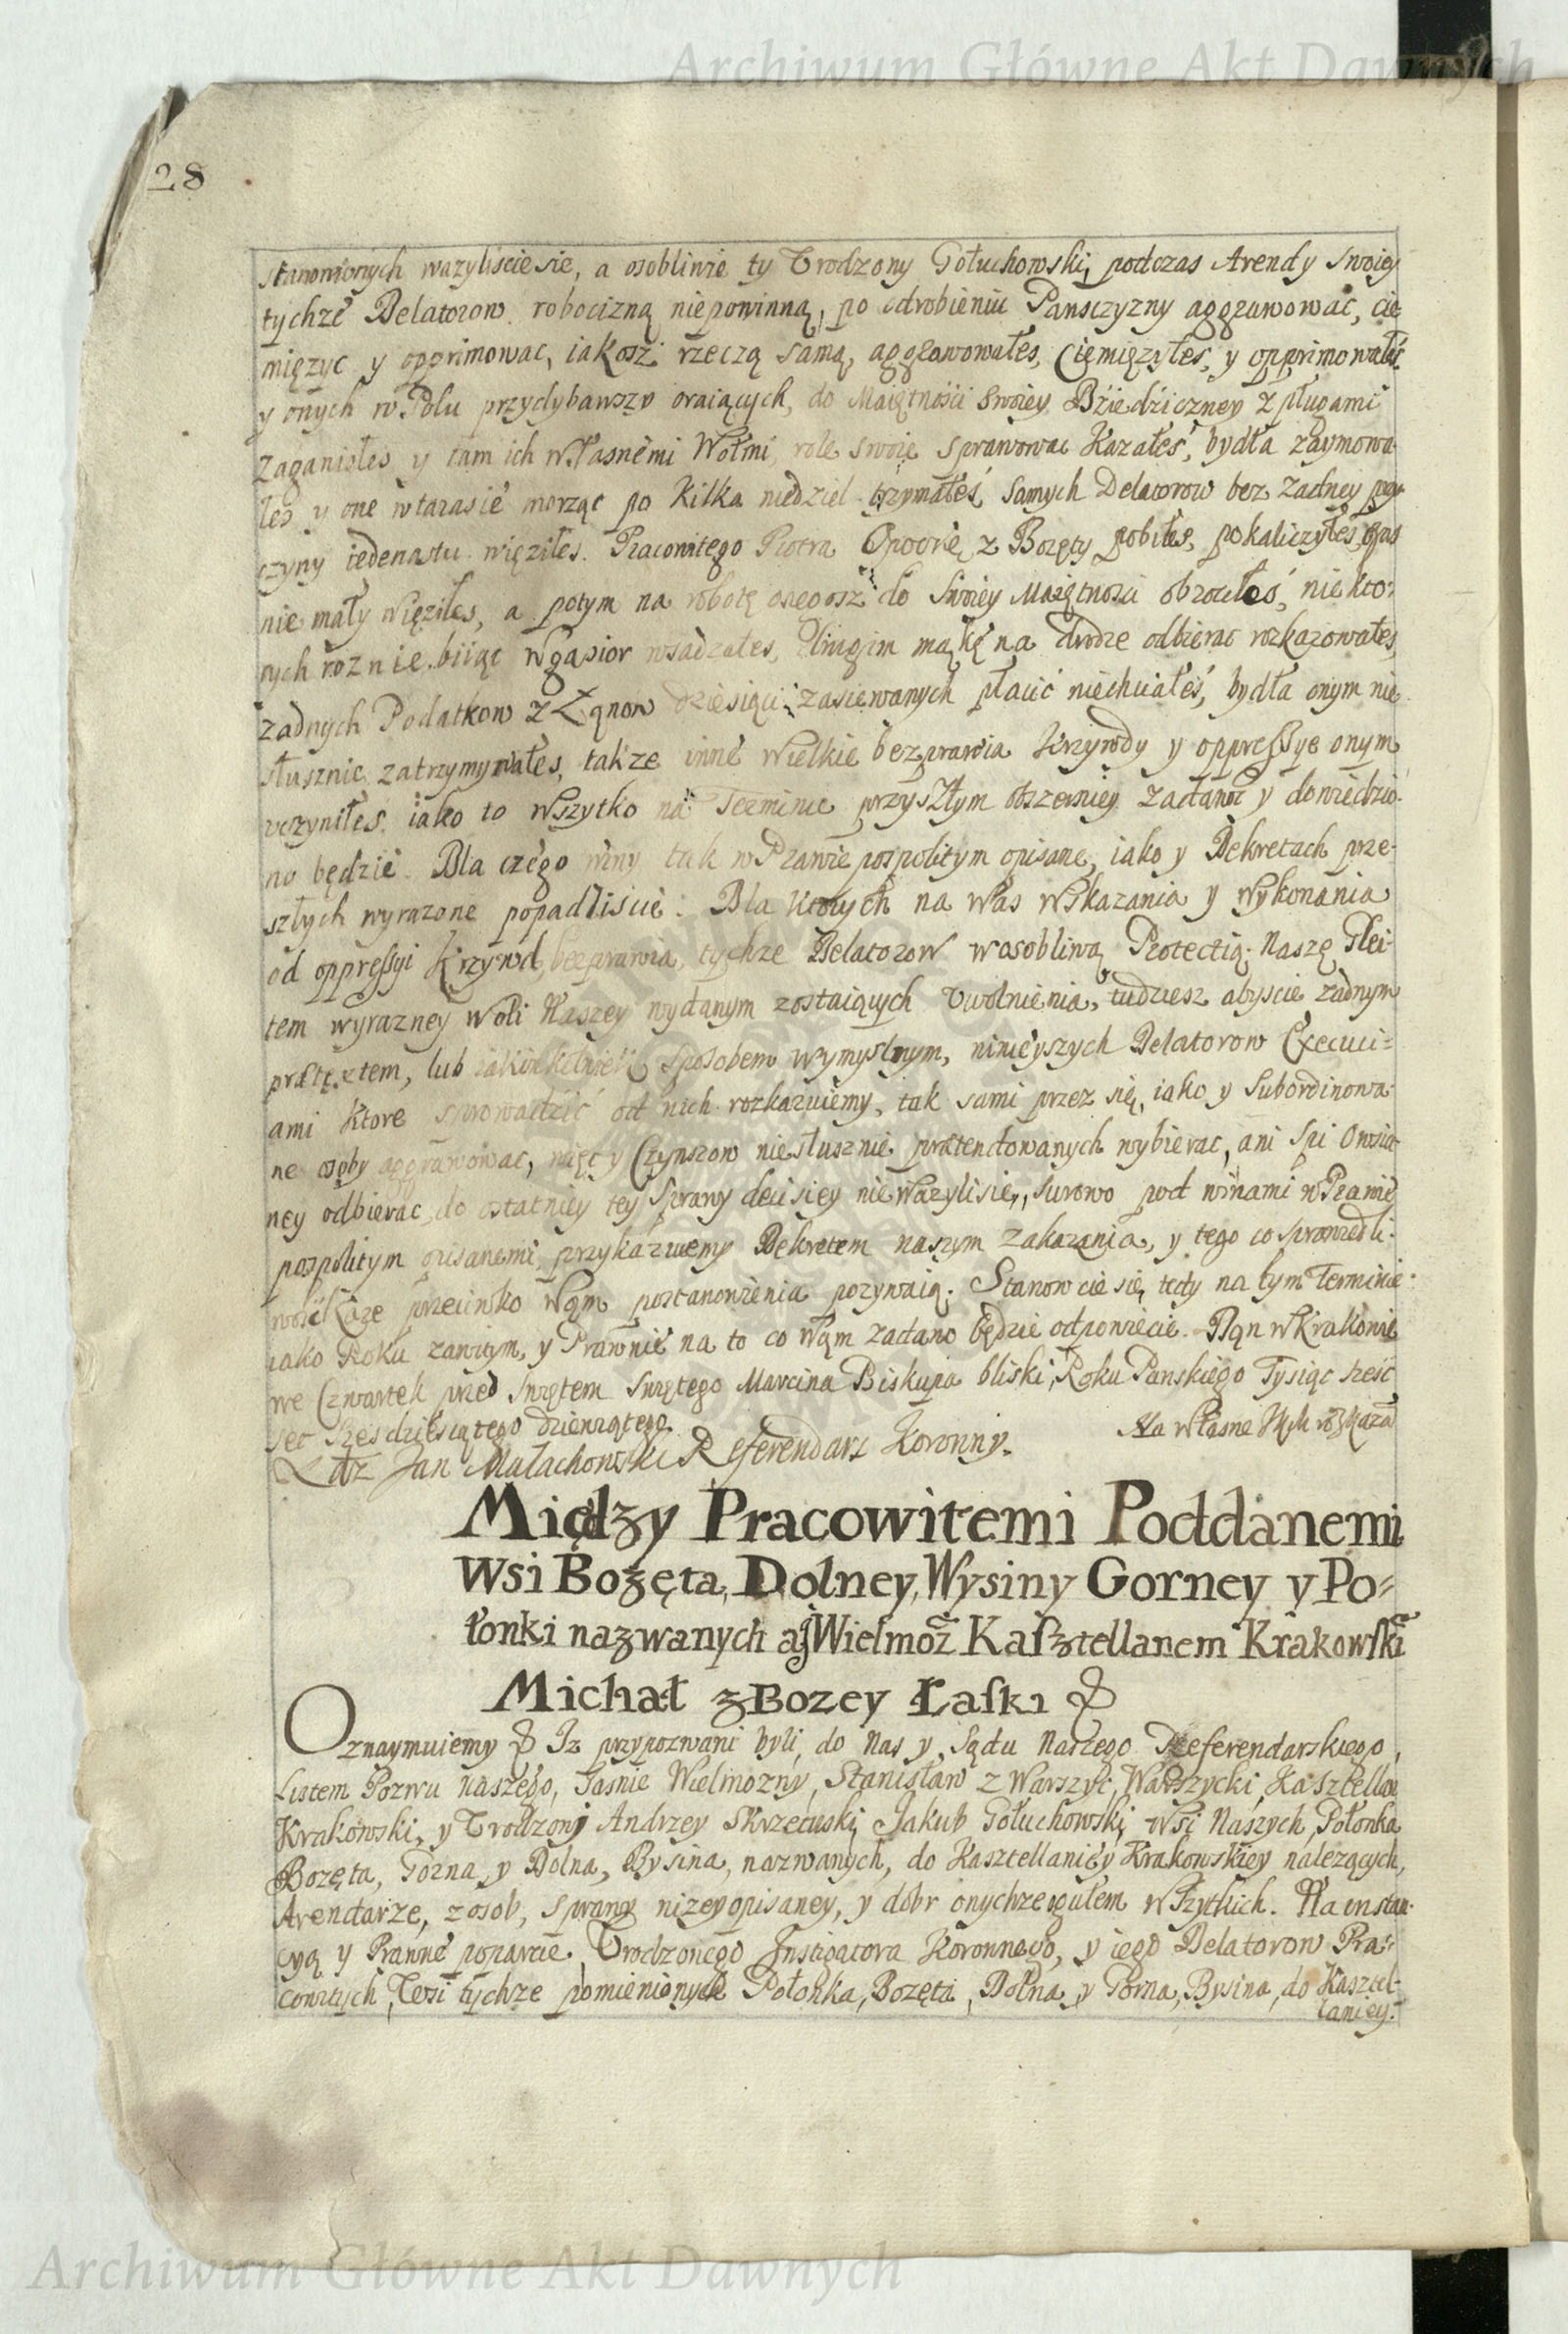 Archiwum Główne Akt Dawnych
28
stanowionych wazyliscie sie, a osobliwie ty Vrodzony Gołuchowski, podczas Arendy swoiey
tychze Delatorow robocizną niepowinną, po odrobieniu Panszczyzny aggrawowac, cie-
mięzyc y opprimowac, iakosz rzeczą samą, aggrawowałes, Ciemięzyłes, y opprimowałes
y onych w Polu przydybawszy oraiących, do Maiętności swoiey Dziedziczney z pługami
zaganiałes y tam ich własnemi Wołmi, role swoie sprawowac Kazałeś, bydła zaymowa-
łes y one w tarasie morząc po Kilka niedziel trzymałeś, samych Delatorow bez zadney przy-
czyny iedenastu więziłes. Pracowitego Piotra Opoorię z Bozęty pobiłes, pokaliczyłes, czas
nie mały więziłes, a potym na robotę onegosz do Swoiey Maiętnosci obrociłeś, niekto-
rych roznie biiąc w gąsior wsadzałes, drugim mąkę na drodze odbierac rozkazowałes,
zadnych Podatkow z Łąnow dziesiąci zasiewanych płacić niechciałeś, bydła onym nie
słusznie zatrzymywałes, takze inne wielkie bezprawia Krzywdy y oppressye onym
vczyniłes, iako to wszytko na Terminie przyszłym obszerniey zadano y dowiedzio-
no będzie. Dla czego winy tak w Prawie pospolitym opisane, iako y Dekretach prze-
szłych wyrazone popadliscie. Dla ktorych na was wskazania y wykonania
od oppressyi Krzywd, bezprawia, tychze Delatorow w osobliwą Protectią Naszę Glei-
tem wyrazney woli Naszey wydanym zostaiących Vwolnienia, tudziesz abyscie zadnym
prætextem, lub iakimkolwiek sposobem wymyslnym, ninieyszych Delatorow Execuci-
ami ktore sprowadzić od nich rozkazuiemy, tak sami przez się, iako y subordinowa-
ne osoby aggrawowac, więc y Czynszow niesłusznie prætendowanych wybierac, ani Spi Owsia-
ney odbierac, do ostatniey tey Sprawy decisiey nie wazyli sie, surowo pod winami w Prawie
pospolitym opisanemi, przykazuiemy Dekretem naszym zakazania, y tego co sprawiedli-
wość Kaze przeciwko Wąm postanowienia pozywaią. Stanowcie się tedy na tym Terminie
iako Roku zawitym, y Prawnie na to co Wąm zadano będzie odpowiecie. Dąn w Krakowie
we Czwartek przed Swiętem Swiętego Marcina Biskupa bliski, Roku Panskiego Tysiąc szesc
set szesdziesiątego dziewiątego. Na własne JKM rozkaza
Jan Małachowski Referendarz Koronny.
Między Pracowitemi Poddanemi
Wsi Bozęta, Dolney, Wysiny Gorney y Po-
łonki nazwanych a JWielmoz Kasztellanem Krakowski
Michał z Bozey Łaski &
Oznaymuiemy & Iz przypozwani byli, do Nas y Sądu Naszego Referendarskiego,
Listem Pozwu naszego, Jasnie Wielmozny, Stanisław z Warszyc, Warszycki, Kasztellan
Krakowski, y Vrodzony Andrzey Skrzecuski, Jakub Gołuchowski, Wsi Naszych, Połonka,
Bozęta, Gorna y Dolna, Bysina, nazwanych, do Kasztellaniey Krakowskiey nalezących,
Arendarze, z osob, sprawy nizey opisaney, y dobr onychze ogułem wszytkich. Na instan-
cyą y Prawne poparcie, Vrodzonego Instigatora Koronnego, y iego Delatorow Pra-
cowitych, Wsi tychze pomienionych Połonka, Bozęta, Dolna y Gorna, Bysina, do Kasztel-
laniey.
Archiwum Główne Akt Dawnych